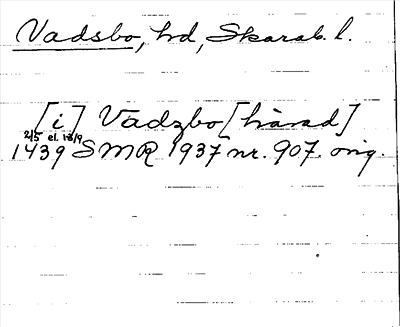 Vadsbo, hd, Skarab. l.
[i] Vadzbo [härad]
2/5 el. 13/9
1439 SMR 1937 nr. 907 orig.